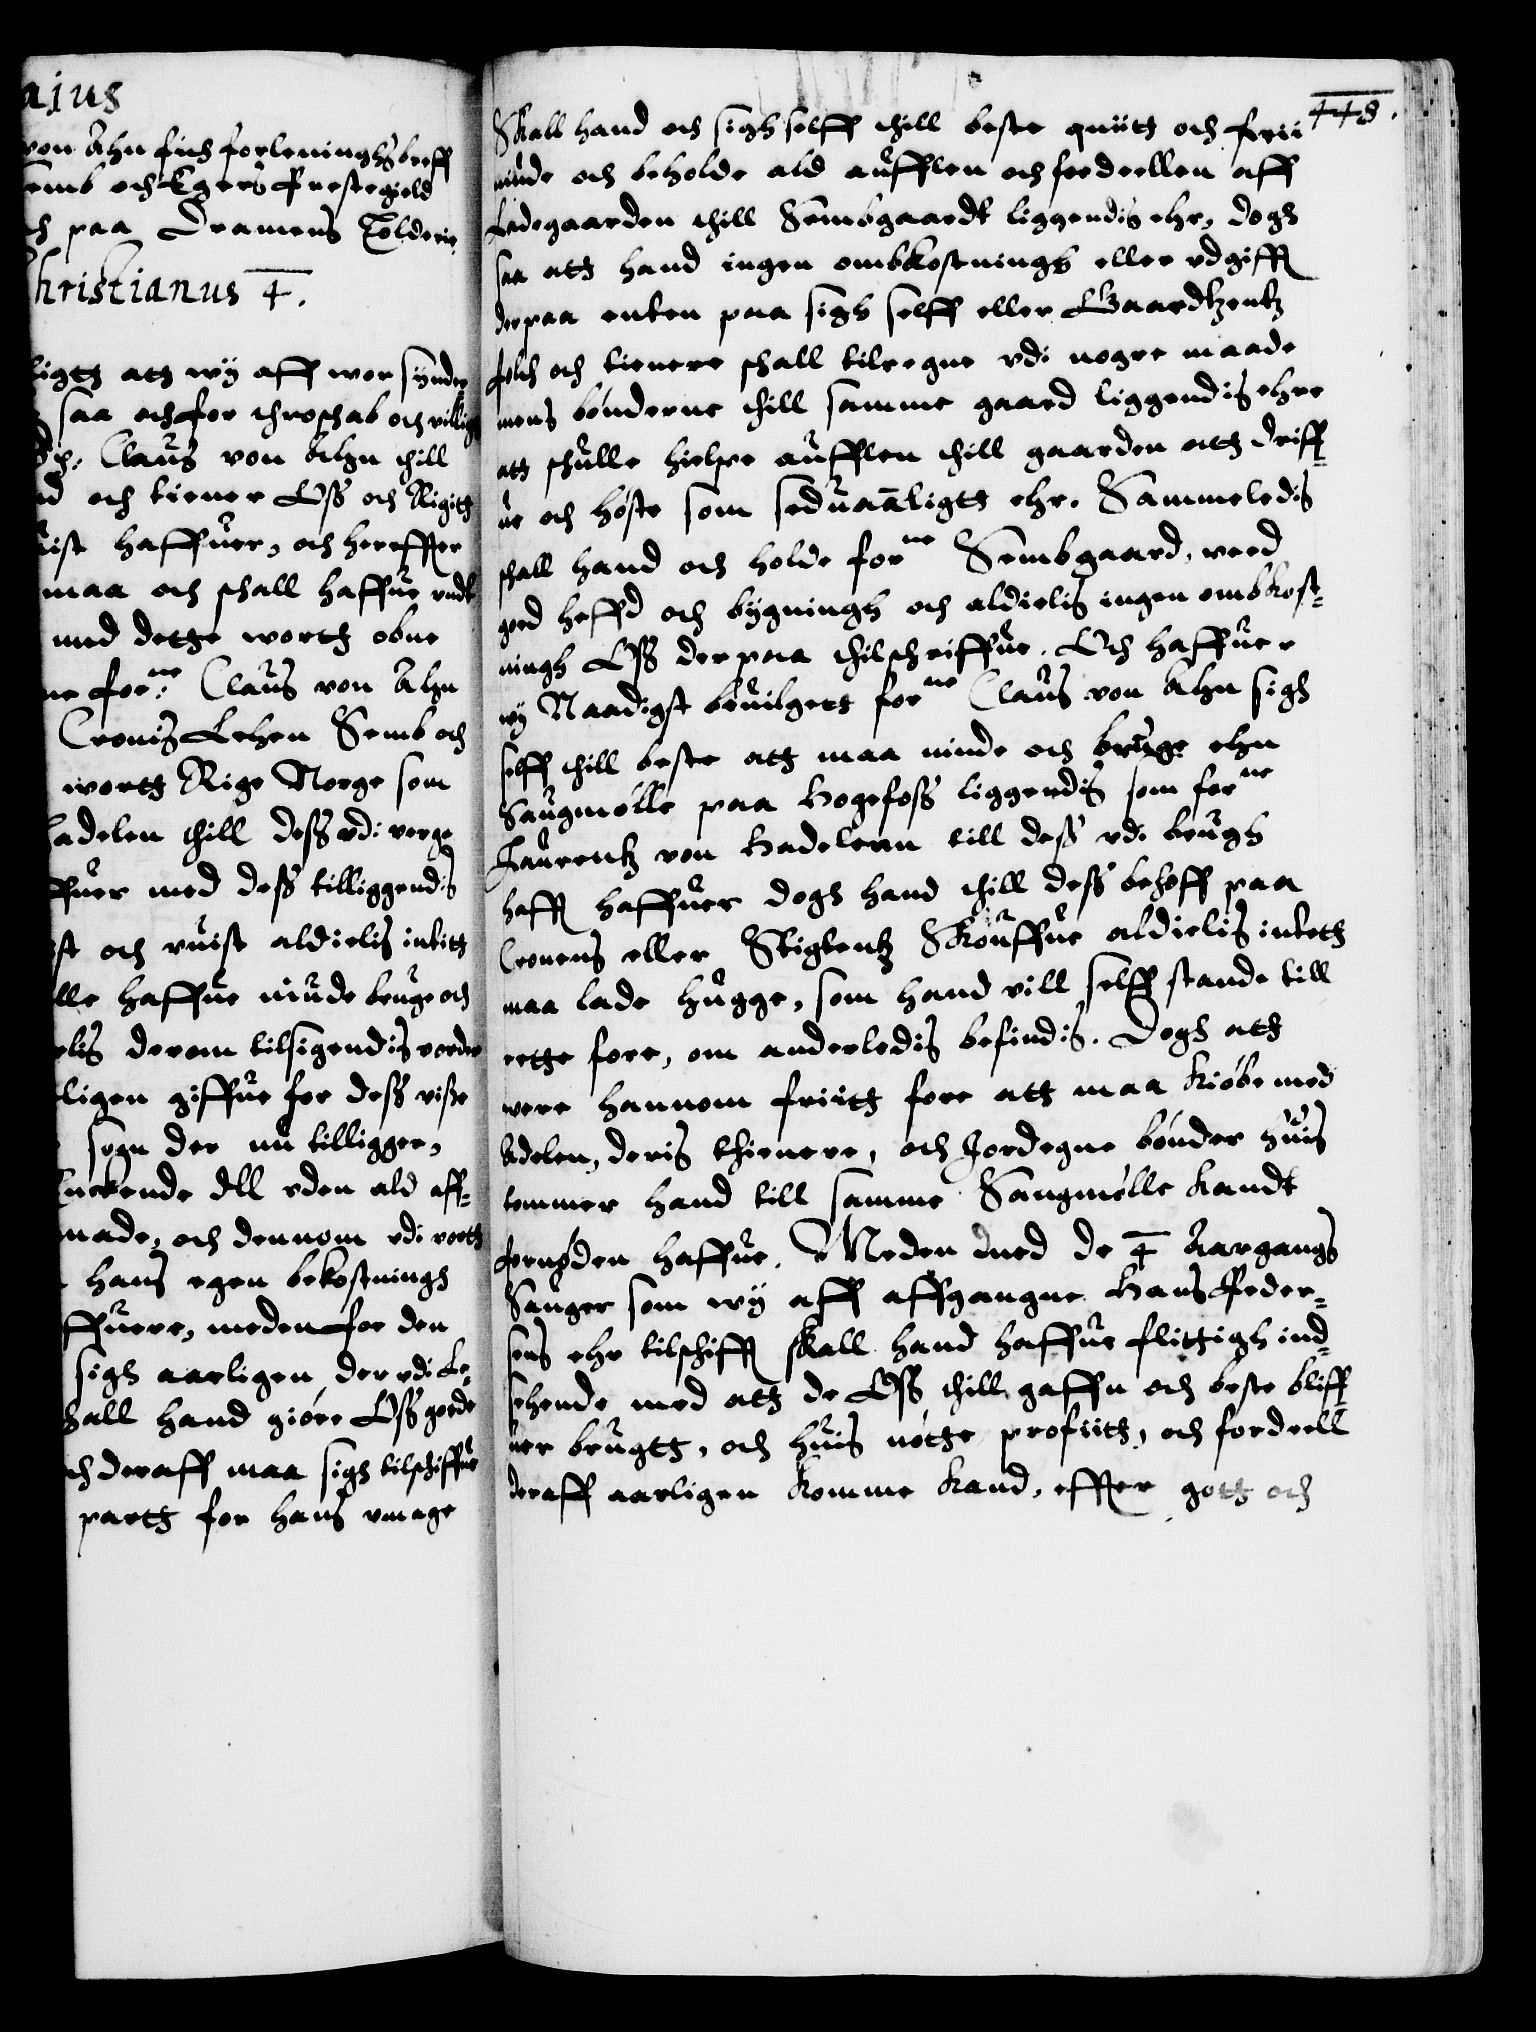 ajus
von Ahn fich forleninghsbreff
Semb och Egers Prestegield
ch paa Dramens Tolderie
hristianus 4.
ligtt att wy aff wor synder
saa och for throschab och villig
Claus von Ahn thill
nd och tiener Oss och Rigitt
uist haffuer, och hereffter
maa och schall haffue vndt
med dette wortt obne
ne forne: Claus von Ahn
Cronis Lehen Semb och
wortt Rige Norge som
adelen thill dess vdi verge
ffuer med dess tilliggendis
st och vuist aldielis intitt
lle haffue niude bruge och
elis derom tilsigendis vorder
ligen giffue for dess visse
sogn der nu tilligger,
uckende dll vden ald aff-
made, och dennom vdi vortt
hans egen bekostningh
ffuere, meden for den
sigh aarligen der vdi Le-
hall hand giøre Oss goede
ch deraff maa sigh tilschiffue
partt for hans vmage
448.
Skall hand och sigh selff thill beste quiitt och frii
niude och beholde ald aufflen och fordeellen aff
Ladegaarden thill Sembgaardt liggendis ehr, dogh
saa att hand ingen ombkostningh eller vdgifft
derpaa enten paa sigh selff eller Gaardtzentz
folch och tienere schall tilregne vdi nogre maade
mens bønderne thill samme gaard liggendis ehre
att schulle hielpe aufflen thill gaarden att driff-
ue och høste som seduaanligtt ehr. Sammeledis
schall hand och holde forne Sembgaard, veed
goed heffd och bygningh och aldielis ingen ombkost-
ningh Oss der paa thilschriffue. Och haffuer
wy Naadigst beuilgett forne Claus von Ahn sigh
selff thill beste att maa niude och bruge ehn
Saugmølle paa Hogefoss liggendis som forne
Laurentz von Hadelern till dess vdi brugh
hafft haffuer dogh hand thill dess behoff paa
Cronens eller Stigtentz Skouffue aldielis intett
maa lade hugge, som hand vill selff stande till
rette fore, om anderledis befindis. Dogh att
were hannom friitt fore att maa kiøbe med
Adelen, deris thienere, och Jordegne bønder huis
tømmer hand till samme Saugmølle kandt
fornøden haffue. Meden med de 4 Aargangs
Sauger som wy aff affgangne Hans Peder-
sens ehr tilschifft skall hand haffue flittigh ind-
sehende med att de Oss thill gaffn och beste bliff-
uer brugtt, och huis nøtte profiitt, och fordeell
deraff aarligen komme kand, effter gott och